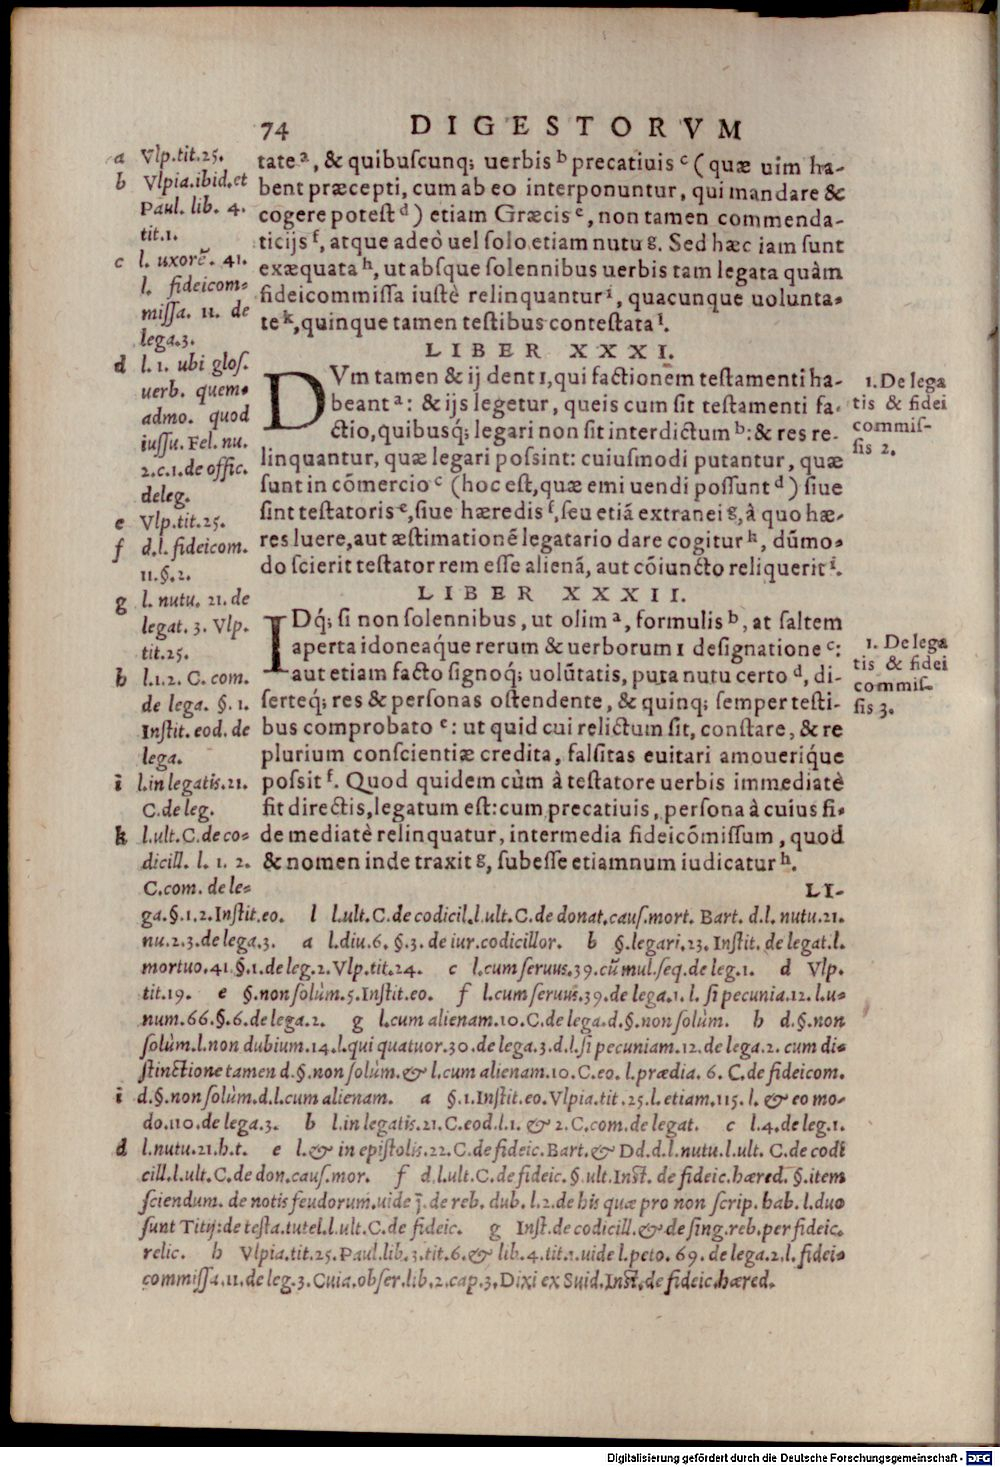 74 DIGESTORVM
tate ᵃ, & quibuſcunq; uerbis ᵇ precatiuis ᶜ (quæ uim ha-
bent præcepti, cum ab eo interponuntur, qui mandare &
cogere poteſt ᵈ) etiam Græcis ᵉ, non tamen commenda-
ticijs ᶠ, atque adeò uel ſolo etiam nutu ᵍ. Sed hæc iam ſunt
exæquata ʰ, ut abſque ſolennibus uerbis tam legata quàm
fideicommiſſa iuſtè relinquantur ⁱ, quacunque uolunta-
te ᵏ, quinque tamen teſtibus conteſtata ˡ.
LIBER XXXI.
DVm tamen & ij dent 1, qui factionem teſtamenti ha-
beant ᵃ: & ijs legetur, queis cum ſit teſtamenti fa-
ctio, quibusq́; legari non ſit interdictum ᵇ: & res re-
linquantur, quæ legari poſsint: cuiuſmodi putantur, quæ
ſunt in cōmercio ᶜ (hoc eſt, quæ emi uendi poſſunt ᵈ) ſiue
ſint teſtatoris ᵉ, ſiue hæredis ᶠ, ſeu etiā extranei ᵍ, à quo hæ-
res luere, aut æſtimationē legatario dare cogitur ʰ, dūmo-
do ſcierit teſtator rem eſſe alienā, aut cōiuncto reliquerit ⁱ.
LIBER XXXII.
IDq́; ſi non ſolennibus, ut olim ᵃ, formulis ᵇ, at ſaltem
aperta idoneaq́ue rerum & uerborum 1 deſignatione ᶜ:
aut etiam facto ſignoq́; uolūtatis, puta nutu certo ᵈ, di-
ſerteq́; res & perſonas oſtendente, & quinq; ſemper teſti-
bus comprobato ᵉ: ut quid cui relictum ſit, conſtare, & re
plurium conſcientiæ credita, falſitas euitari amoueriq́ue
poſsit ᶠ. Quod quidem cùm à teſtatore uerbis immediatè
fit directis, legatum eſt: cum precatiuis, perſona à cuius fi-
de mediatè relinquatur, intermedia fideicōmiſſum, quod
& nomen inde traxit ᵍ, ſubeſſe etiamnum iudicatur ʰ.
LI-
a Vlp.tit.25.
b Vlpia.ibid.et
Paul. lib. 4.
tit.1.
c l. uxorē. 41.
l. fideicom-
miſſa. 11. de
lega.3.
d l. 1. ubi gloſ.
uerb. quem-
admo. quod
iuſſu. Fel. nu.
2.c.1.de offic.
deleg.
e Vlp.tit.25.
f d.l. fideicom.
11.§.2.
g l. nutu. 21. de
legat. 3. Vlp.
tit.25.
h l.1.2. C. com.
de lega. §. 1.
Inſtit. eod. de
lega.
i l.in legatis.21.
C.de leg.
k l.ult.C.de co-
dicill. l. 1. 2.
C.com. de le-
1. De lega
tis & fidei
commiſ-
ſis 2.
1. De lega
tis & fidei
commiſ-
ſis 3.
ga.§.1.2.Inſtit.eo. l l.ult.C.de codicil.l.ult.C.de donat.cauſ.mort. Bart. d.l. nutu.21.
nu.2.3.de lega.3. a l.diu.6. §.3. de iur.codicillor. b §.legari.23. Inſtit. de legat.l.
mortuo.41.§.1.de leg.2.Vlp.tit.24. c l.cum ſeruus.39.cū mul.ſeq.de leg.1. d Vlp.
tit.19. e §.non ſolùm.5.Inſtit.eo. f l.cum ſeruus.39.de lega.1. l. ſi pecunia.12. l.u-
num.66.§.6.de lega.2. g l.cum alienam.10.C.de lega.d.§.non ſolùm. h d.§.non
ſolùm.l.non dubium.14.l.qui quatuor.30.de lega.3.d.l.ſi pecuniam.12.de lega.2. cum di-
ſtinctione tamen d.§.non ſolùm.& l.cum alienam.10.C.eo. l.prædia. 6. C.de fideicom.
i d.§.non ſolùm.d.l.cum alienam. a §.1.Inſtit.eo.Vlpia.tit.25.l.etiam.115.l. & eo mo-
do.110.de lega.3. b l.in legatis.21.C.eod.l.1. & 2.C.com.de legat. c l.4.de leg.1.
d l.nutu.21.h.t. e l.& in epiſtolis.22.C.de fideic.Bart.& Dd.d.l.nutu.l.ult. C.de codi
cill.l.ult.C.de don.cauſ.mor. f d.l.ult.C.de fideic.§.ult.Inſt. de fideic.hæred. §.item
ſciendum. de notis feudorum.uide j̄. de reb. dub. l.2.de his quæ pro non ſcrip. hab. l.duo
ſunt Titij:de teſta.tutel.l.ult.C.de fideic. g Inſt.de codicill.& de ſing.reb.per fideic.
relic. h Vlpia.tit.25.Paul.lib.3.tit.6.& lib.4.tit.1.uide l.peto. 69. de lega.2.l. fidei-
commiſſa.11.de leg.3.Cuia.obſer.lib.2.cap.3.Dixi ex Suid.Inſt.de fideic.hæred.
Digitalisierung gefördert durch die Deutsche Forschungsgemeinschaft - DFG